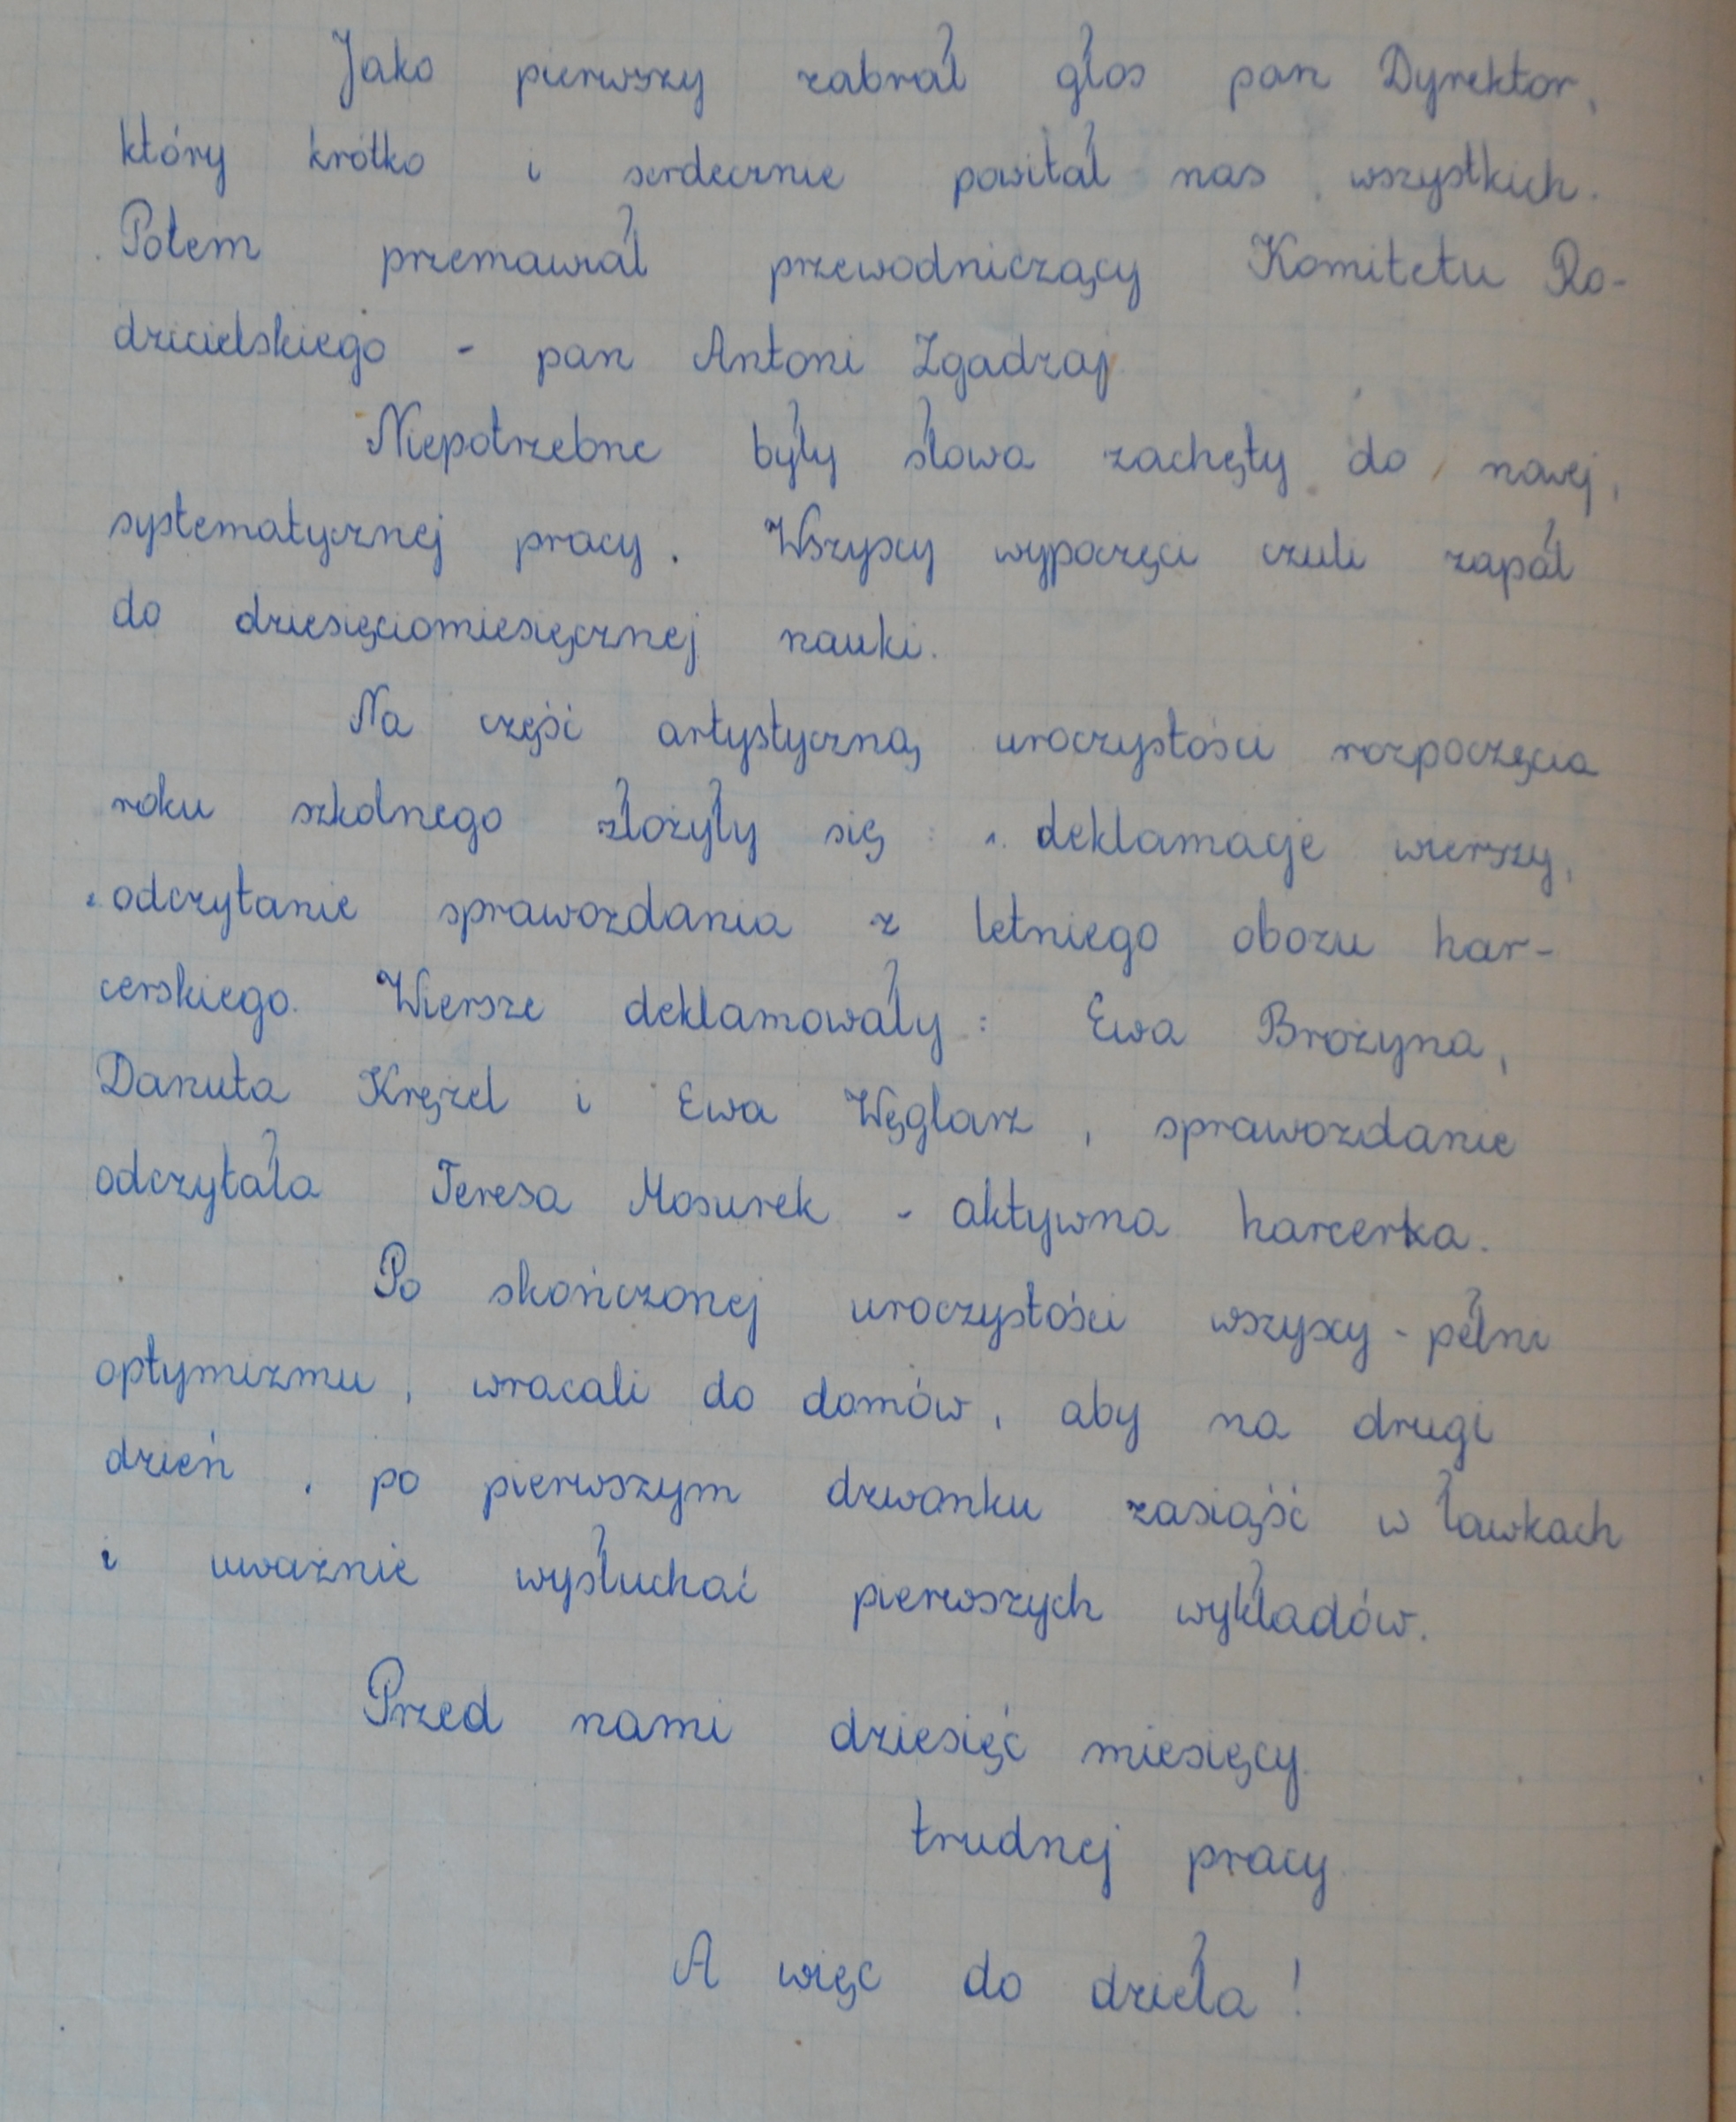 Jako pierwszy zabrał głos pan Dyrektor,
który krótko i serdecznie powitał nas wszystkich.
Potem przemawiał przewodniczący Komitetu Ro-
dzicielskiego - pan Antoni Zgadzaj
Niepotrzebne były słowa zachęty do nowej,
systematycznej pracy. Wszyscy wypoczęci czuli zapał
do dziesięciomiesięcznej nauki.
Na część artystyczną uroczystości rozpoczęcia
roku szkolnego złożyły się : deklamacje wierszy,
i odczytanie sprawozdania z letniego obozu har-
cerskiego. Wiersze deklamowały : Ewa Brożyna,
Danuta Krężel i Ewa Węglarz , sprawozdanie
odczytała Teresa Mosurek - aktywna harcerka.
Po skończonej uroczystości wszyscy - pełni
optymizmu , wracali do domów, aby na drugi
dzień , po pierwszym dzwonku zasiąść w ławkach
i uważnie wysłuchać pierwszych wykładów.
Przed nami dziesięć miesięcy
trudnej pracy
A więc do dzieła !